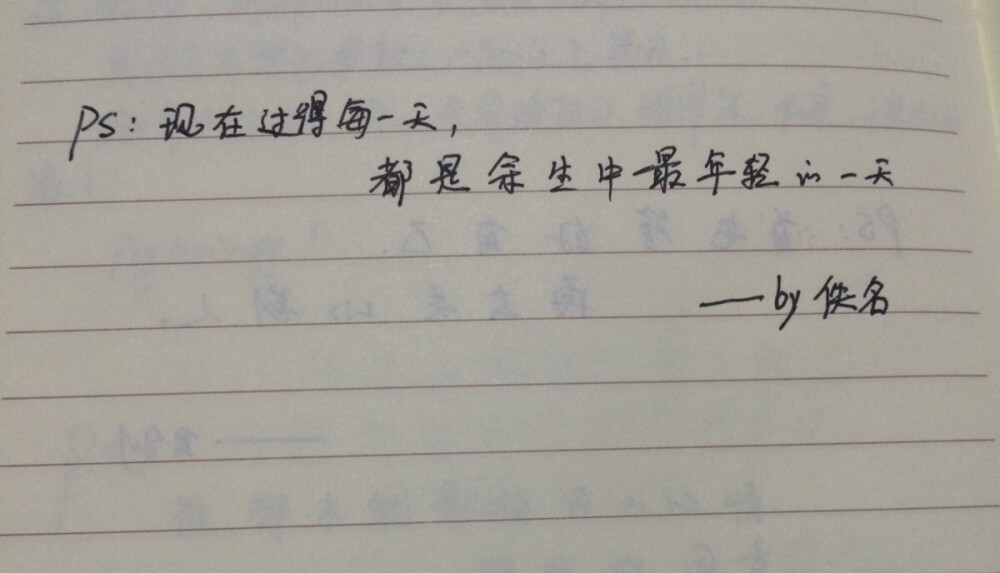 PS：现在过得每一天，
都是余生中最年轻的一天
——by 佚名